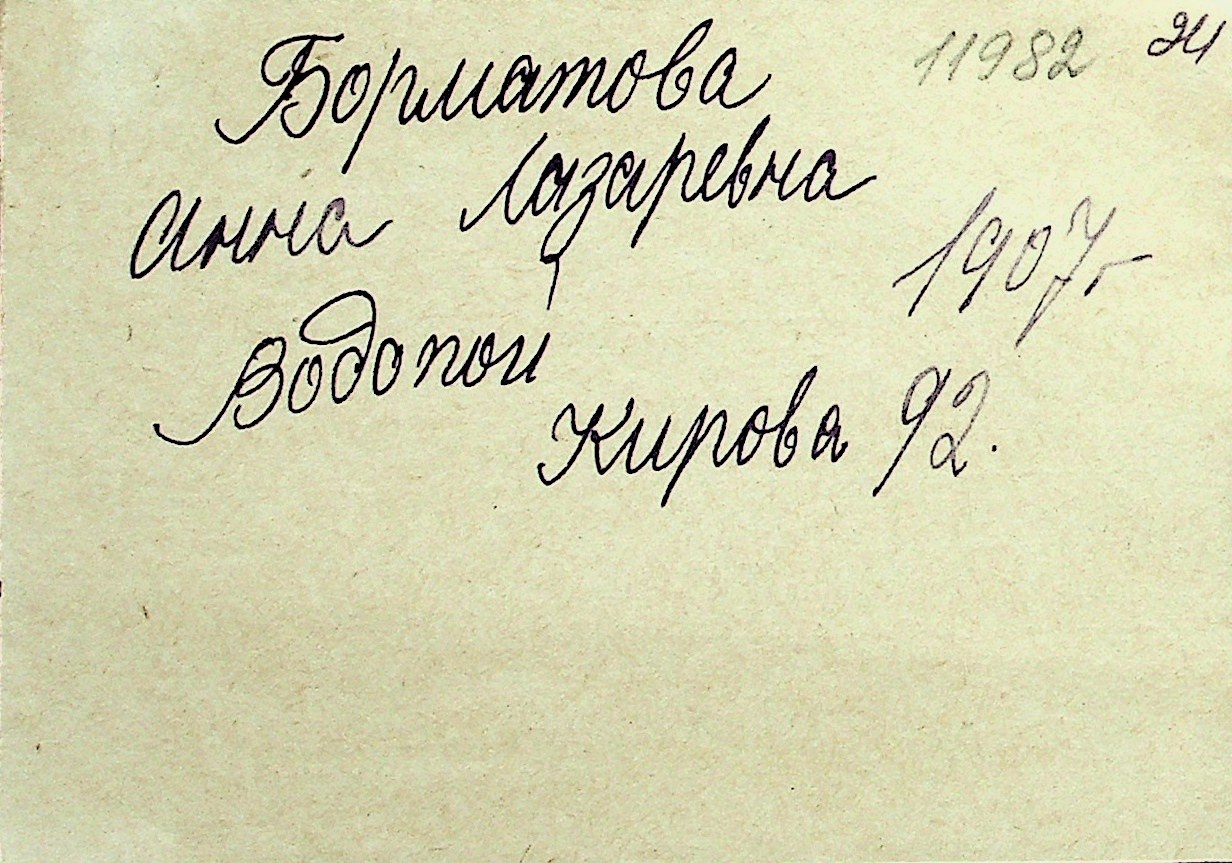 11982 24
Борматова
Анна Лазаревна
1907г
Водопой
Кирова 92.